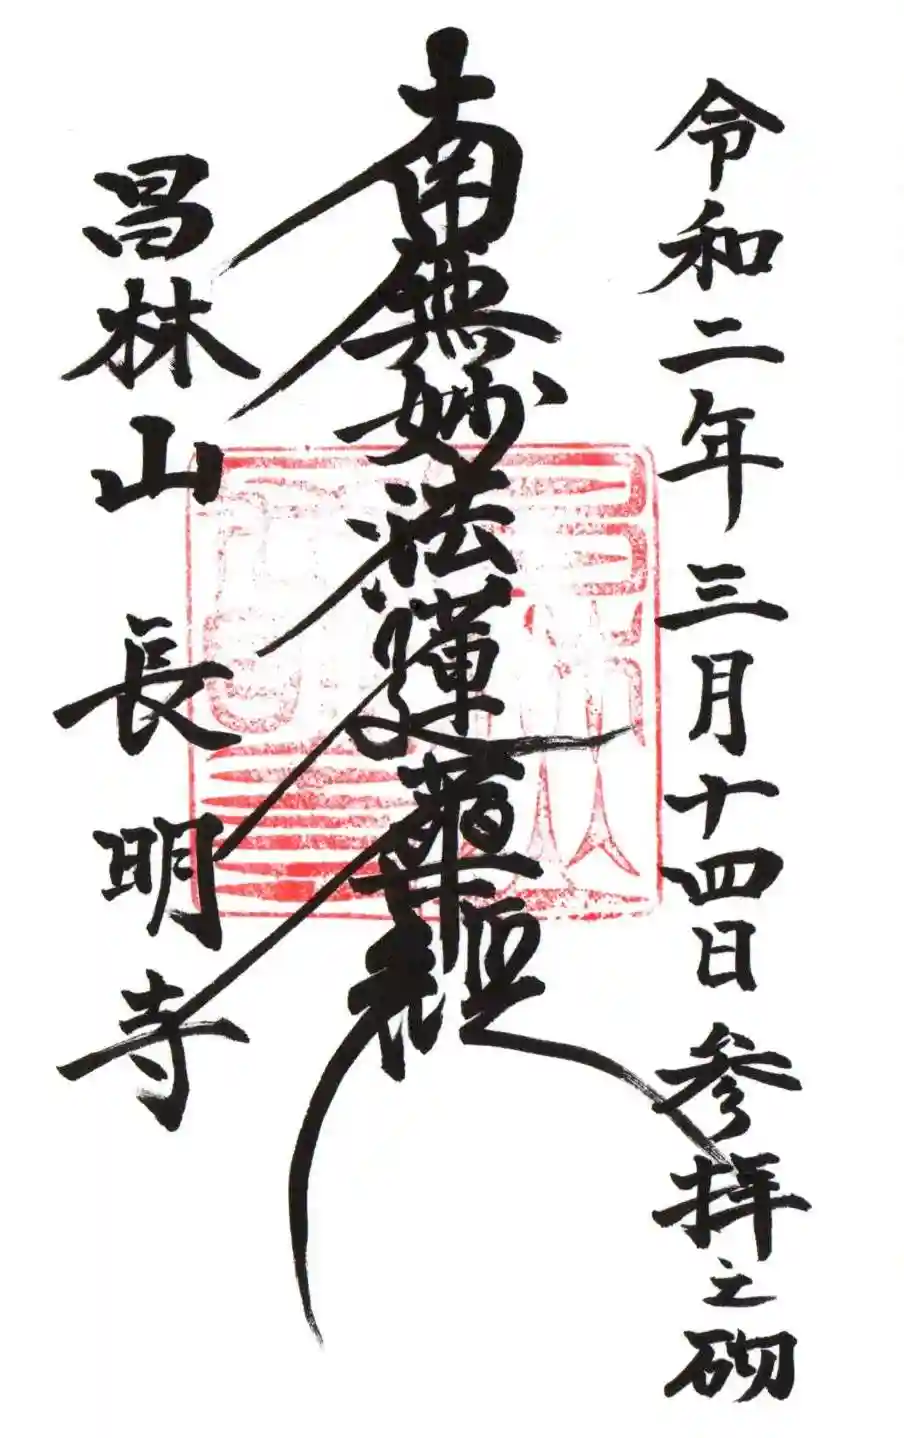 令和二年三月十四日 参拝之砌
南無妙法蓮華経
昌林山 長明寺